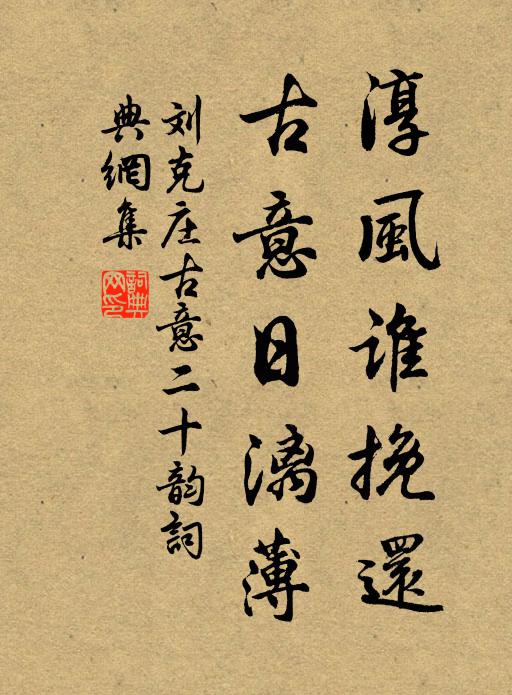 淳風誰挽還
古意日漓薄
刘克庄古意二十韵詞
典網集
詞典網印